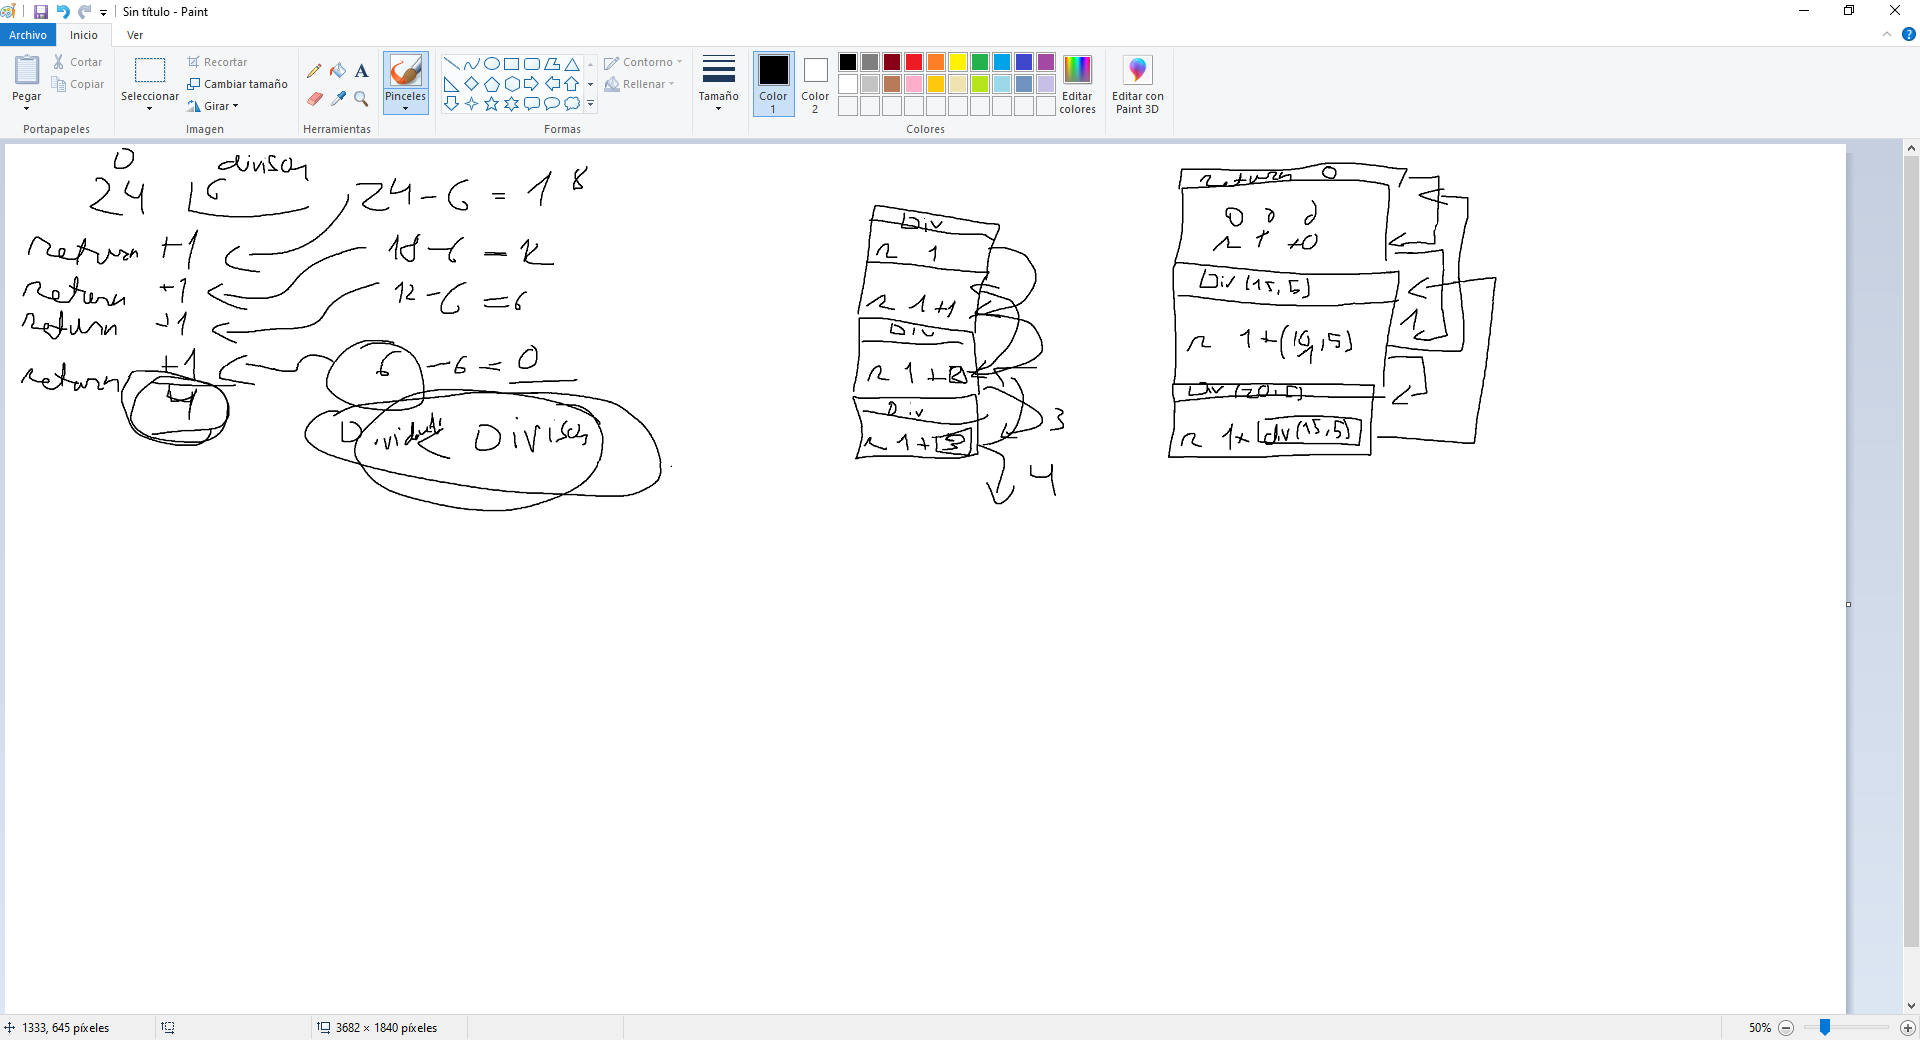 Sin título - Paint
Archivo
Inicio
Ver
Pegar
Cortar
Copiar
Portapapeles
Seleccionar
Recortar
Cambiar tamaño
Girar
Imagen
Herramientas
Pinceles
Contorno
Rellenar
Formas
Tamaño
Color 1
Color 2
Editar colores
Editar con Paint 3D
Colores
0
24
6
divisor
24-6=18
return +1
18-6=12
return +1
12-6=6
return +1
6-6=0
return +1
4
Dividendo < Divisor
Div
r 1
r 1+1
Div
r 1+2
Div
r 1+3
3
4
return 0
r 1 +0
Div(15,5)
r 1+(10,5)
1
Div(20,5)
r 1+ div(15,5)
1333, 645 píxeles
3682 × 1840 píxeles
50%